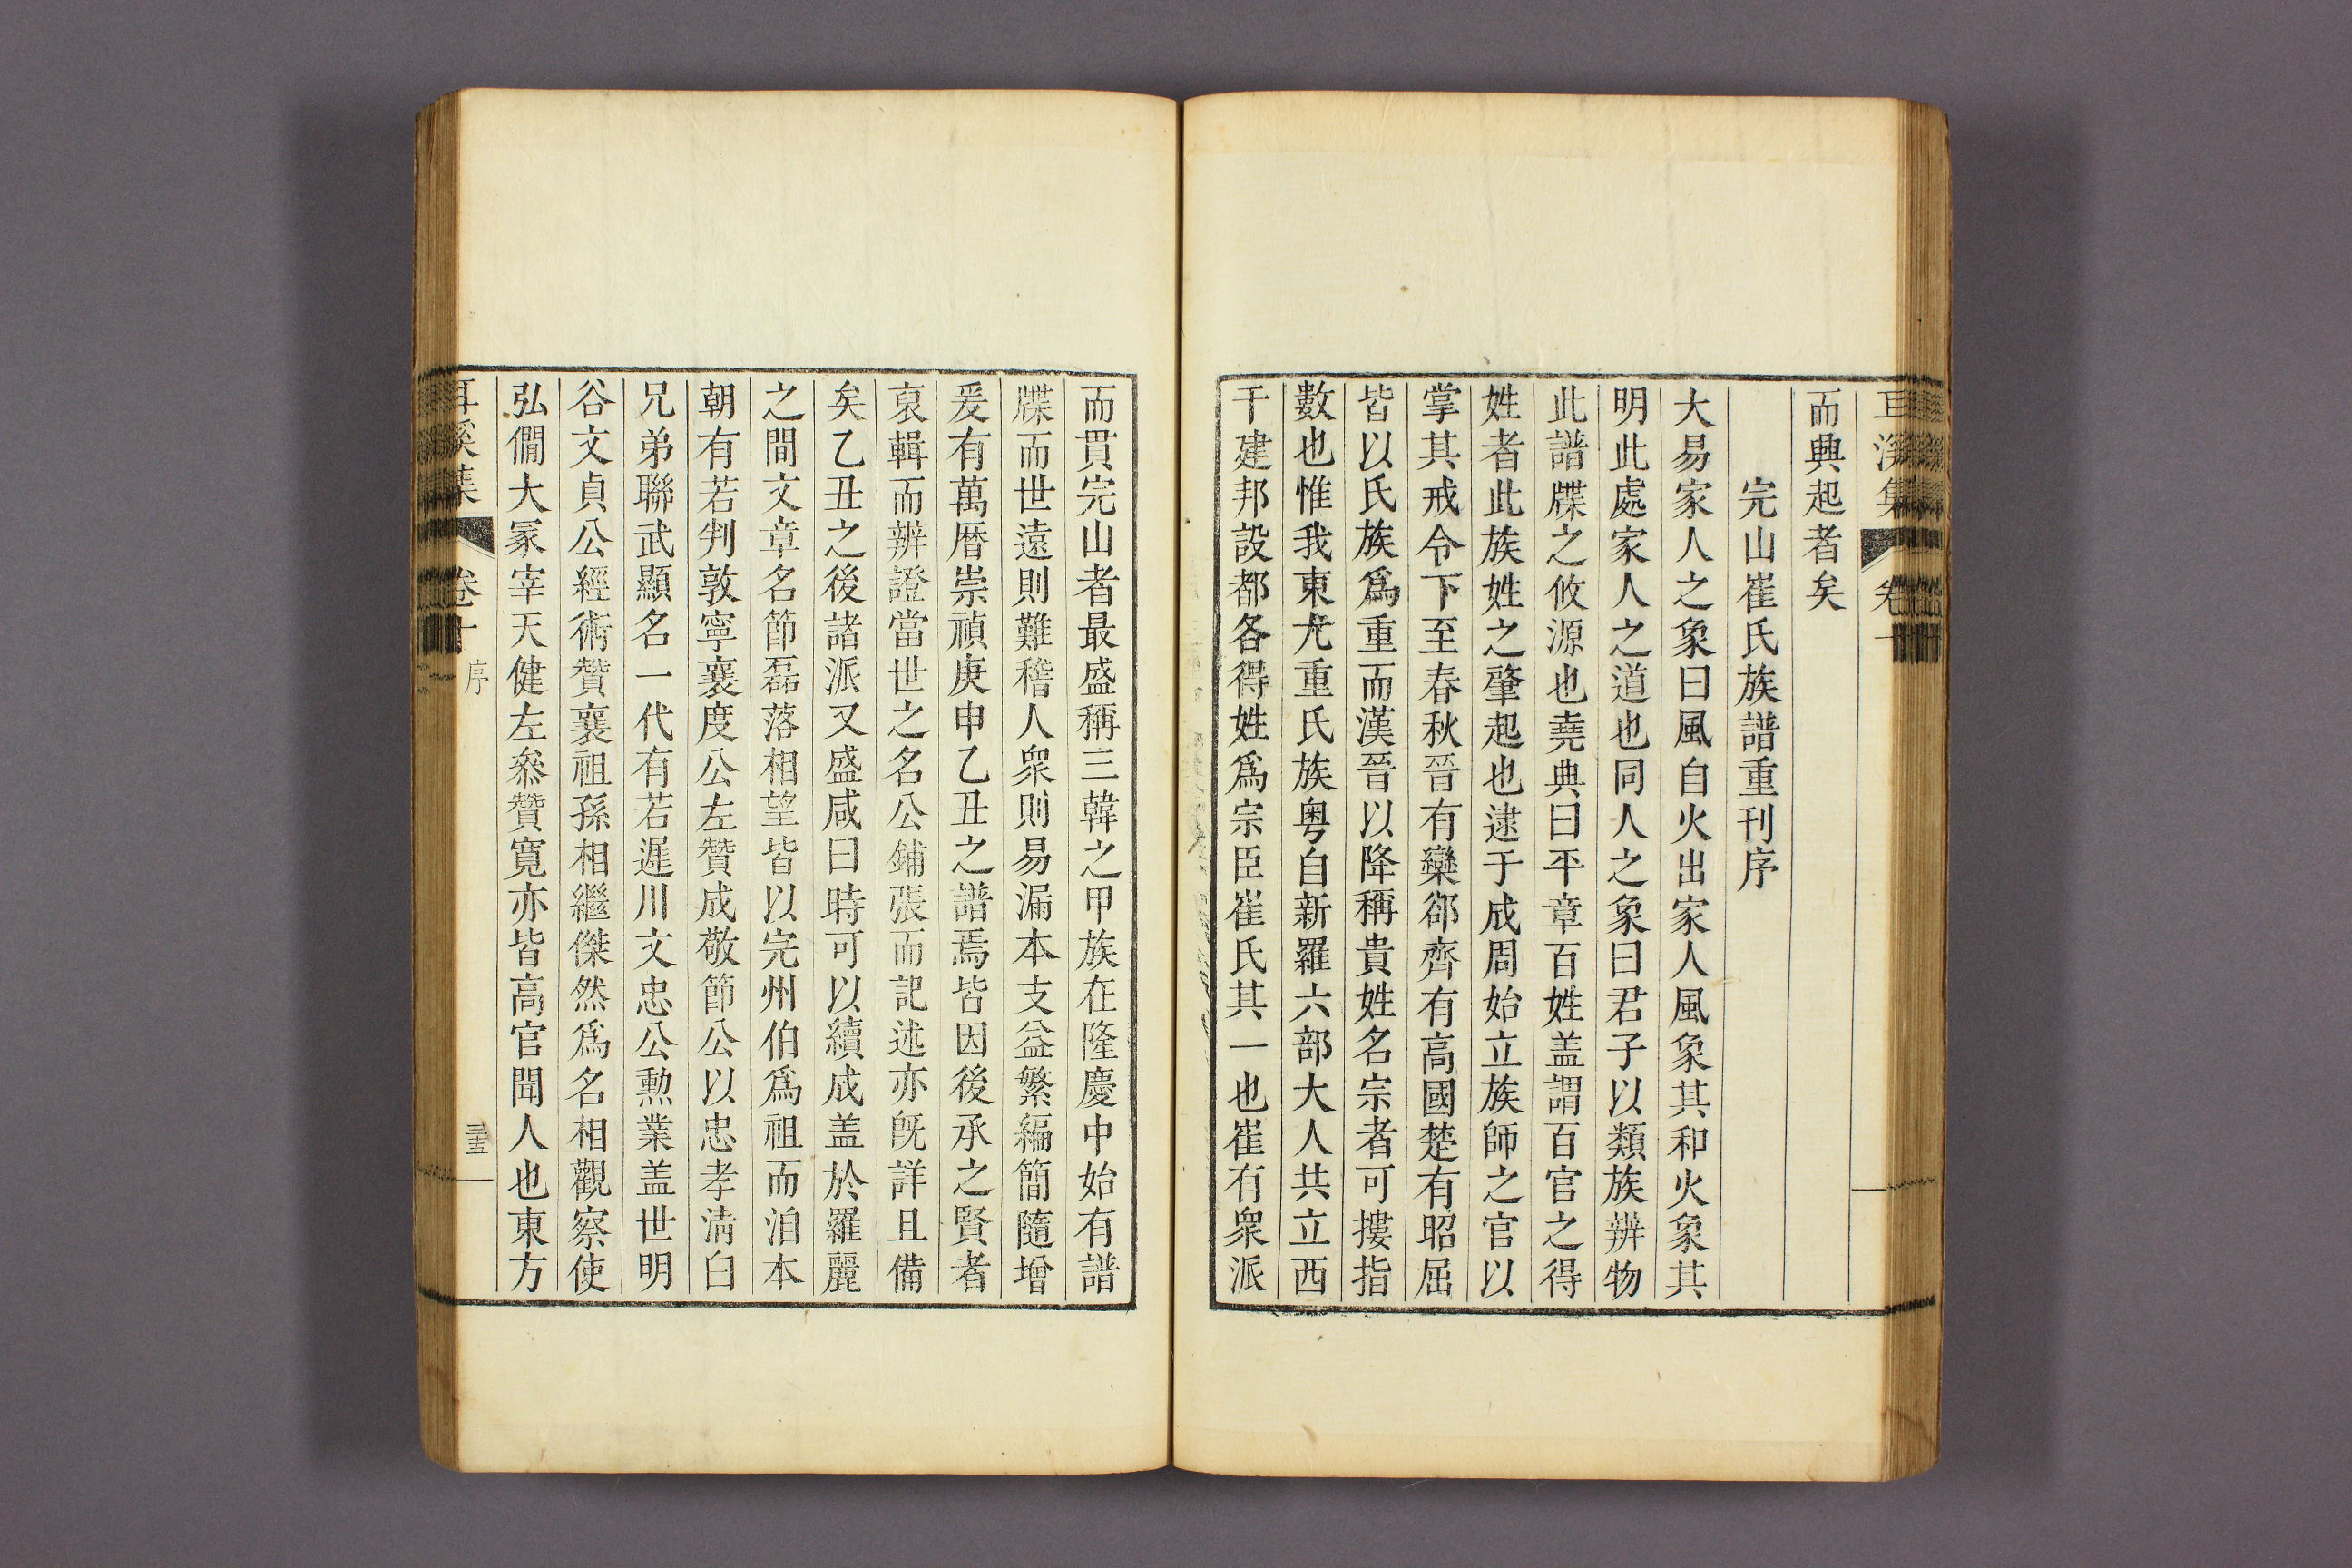 而興起者矣
完山崔氏族譜重刊序
大易家人之象曰風自火出家人風象其和火象其
明此處家人之道也同人之象曰君子以類族辨物
此譜牒之攸源也堯典曰平章百姓盖謂百官之得
姓者此族姓之肇起也逮于成周始立族師之官以
掌其戒令下至春秋晉有欒郤齊有高國楚有昭屈
皆以氏族爲重而漢晉以降稱貴姓名宗者可摟指
數也惟我東尤重氏族粤自新羅六部大人共立西
干建邦設都各得姓爲宗臣崔氏其一也崔有衆派
而貫完山者最盛稱三韓之甲族在隆慶中始有譜
牒而世遠則難稽人衆則易漏本支益繁編簡隨增
爰有萬曆崇禎庚申乙丑之譜焉皆因後承之賢者
裒輯而辨證當世之名公鋪張而記述亦旣詳且備
矣乙丑之後諸派又盛咸曰時可以續成盖於羅麗
之間文章名節磊落相望皆以完州伯爲祖而洎本
朝有若判敦寧襄度公左贊成敬節公以忠孝淸白
兄弟聯武顯名一代有若遲川文忠公勳業盖世明
谷文貞公經術贊襄祖孫相繼傑然爲名相觀察使
弘僩大冢宰天健左叅贊寬亦皆高官聞人也東方
耳溪集 卷十 序 三十五